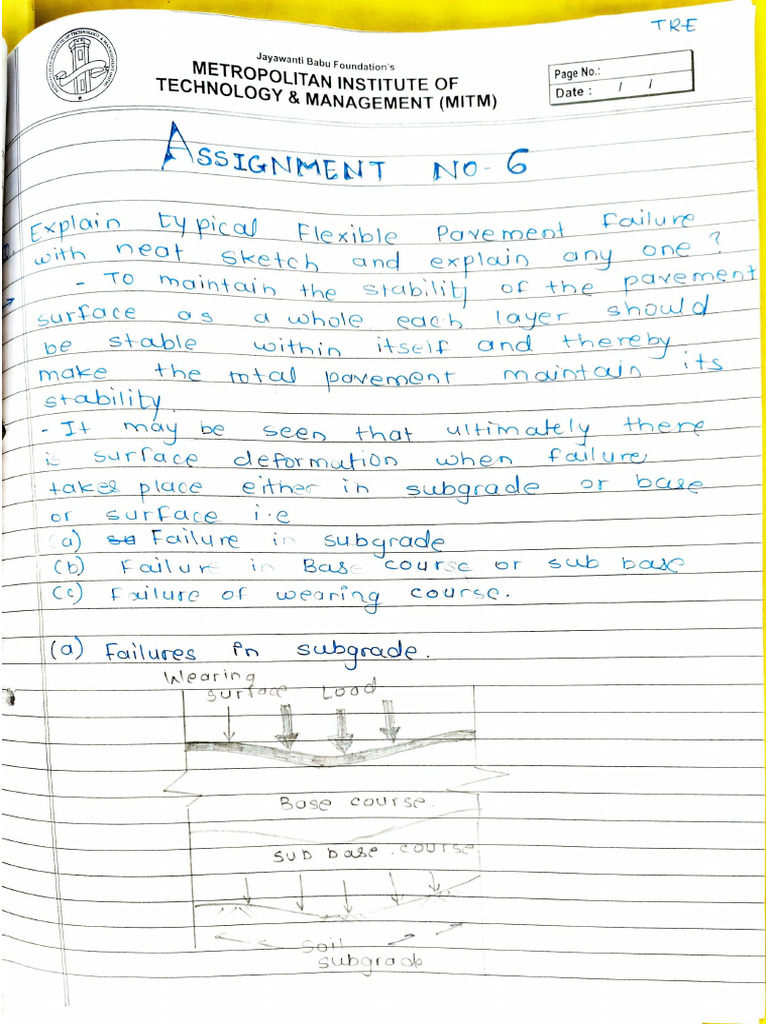 TRE
Jayawanti Babu Foundation's
METROPOLITAN INSTITUTE OF
TECHNOLOGY & MANAGEMENT (MITM)
Page No.:
Date : / /
ASSIGNMENT NO-6
Explain typical Flexible Pavement Failure
with neat sketch and explain any one?
- To maintain the stability of the pavement
surface as a whole each layer should
be stable within itself and thereby
make the total pavement maintain its
stability.
- It may be seen that ultimately there
is surface deformation when failure
takes place either in subgrade or base
or surface i.e
(a) Failure in subgrade
(b) Failure in Base course or sub base
(c) Failure of wearing course.
(a) Failures in subgrade.
Wearing
surface Load
Base course.
sub base course
soil
subgrade